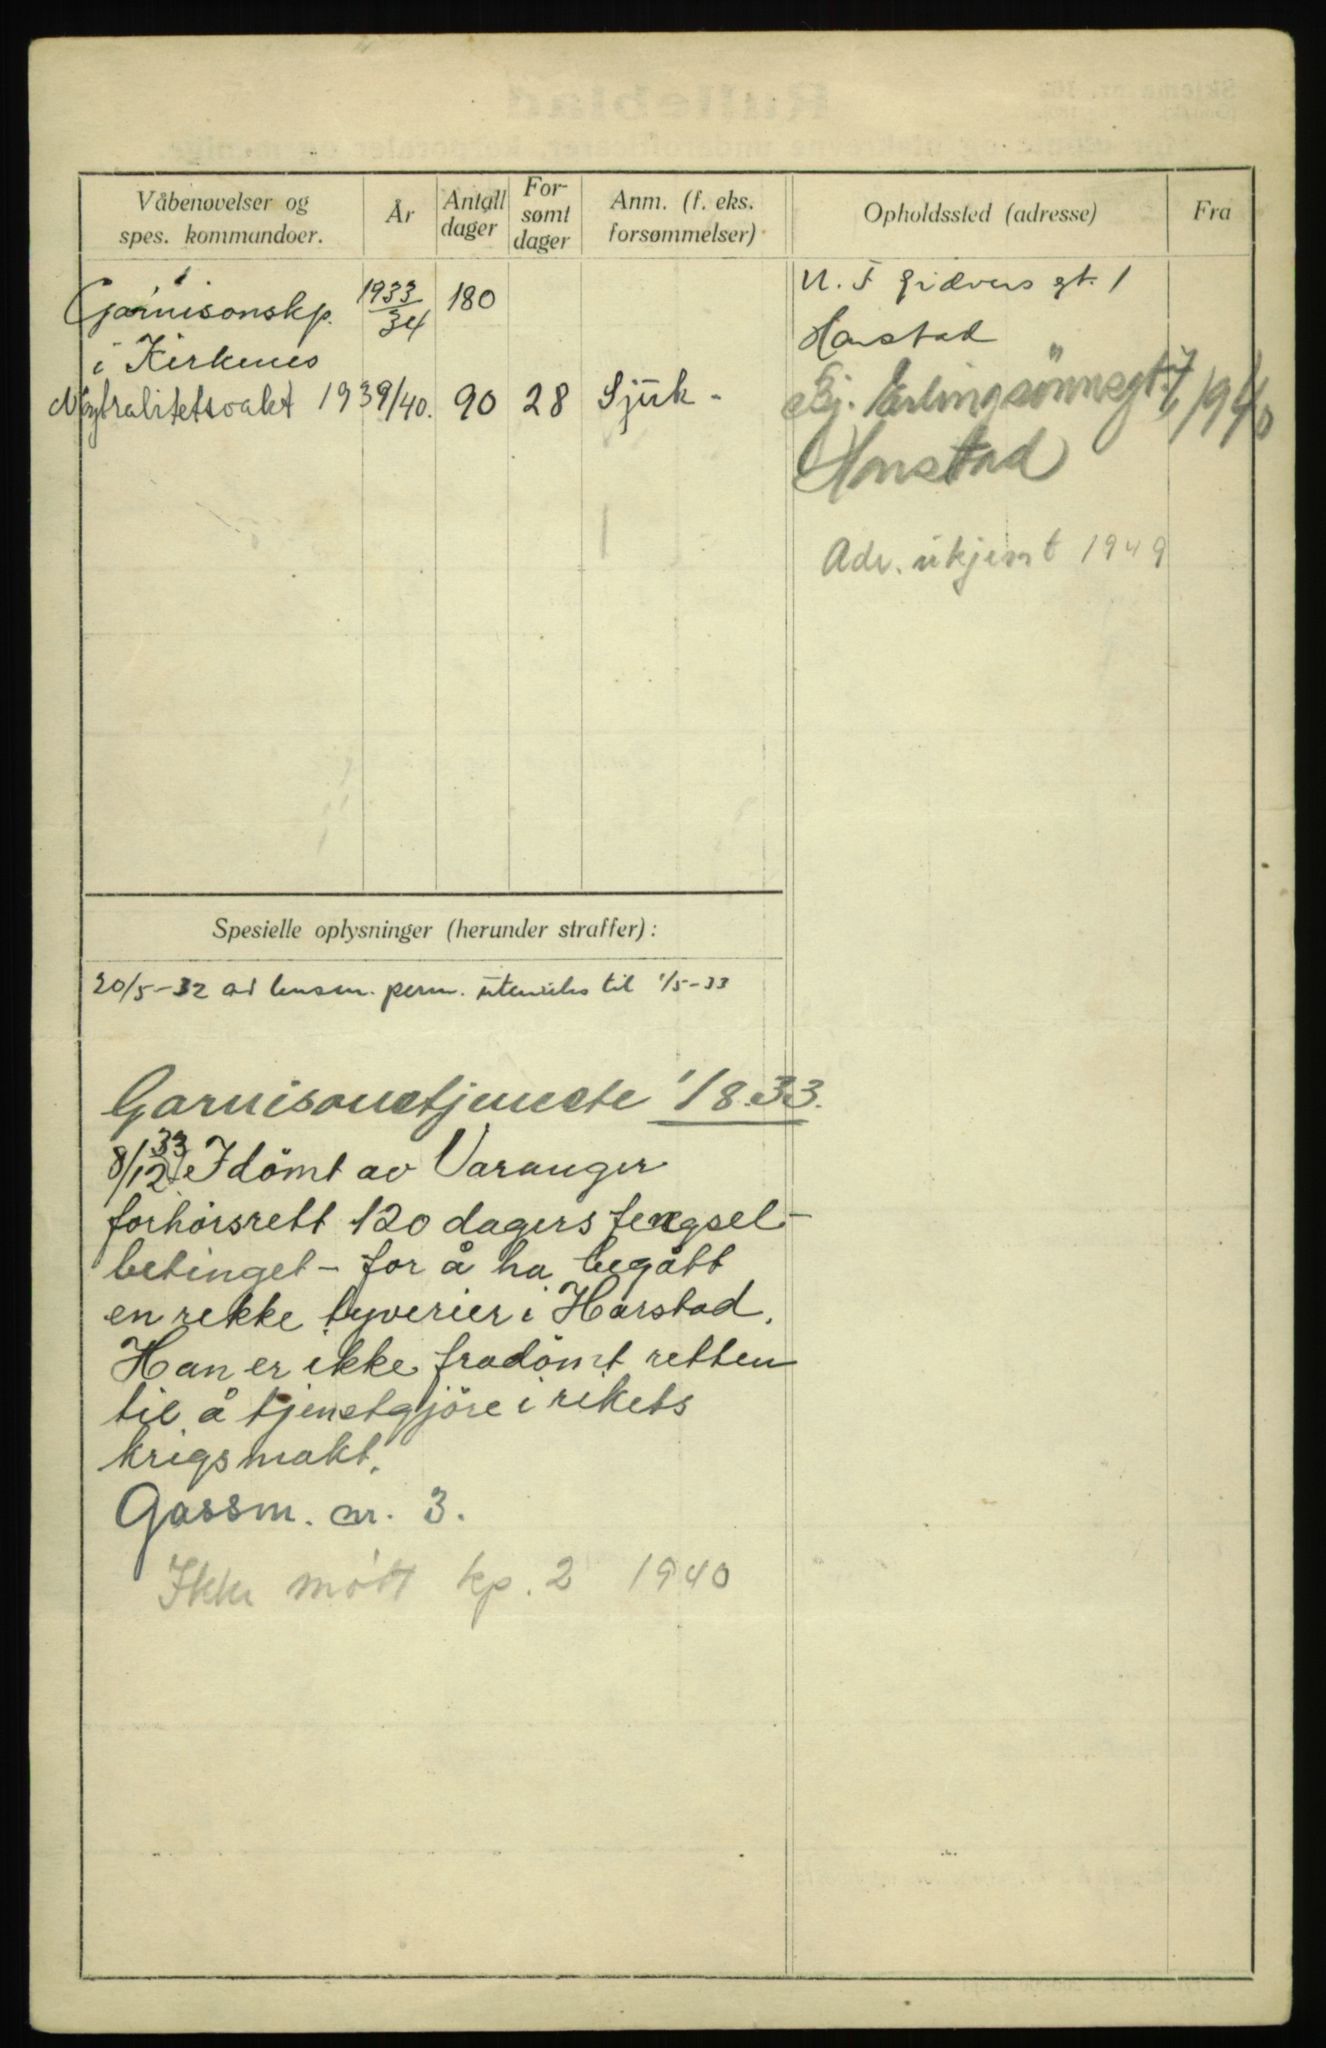 Våbenøvelser og spes. kommandoer.
År
Antall dager
For-sømt dager
Anm. (f. eks. forsømmelser)
Opholdssted (adresse)
Fra
Garnisonskp. 1933/34 180
i Kirkenes
Nøytralitetsvakt 1939/40. 90 28 Sjuk -
N. F gt. 1
Harstad
Ej. Erlingsønnsgt. 7 1940
Harstad
Adr. ukjent 1949
Spesielle oplysninger (herunder straffer):
20/5-32 av lensm. perm. utenriks til 1/5-33
Garnisonstjeneste 1/8.33.
8/12 33 Idömt av Varanger
forhörsrett 120 dagers fengsel -
betinget - for å ha begått
en rekke tyverier i Harstad.
Han er ikke fradömt retten
til å tjenstgjöre i rikets
krigsmakt.
Gassm. nr. 3.
Ikke mött kp. 2 1940